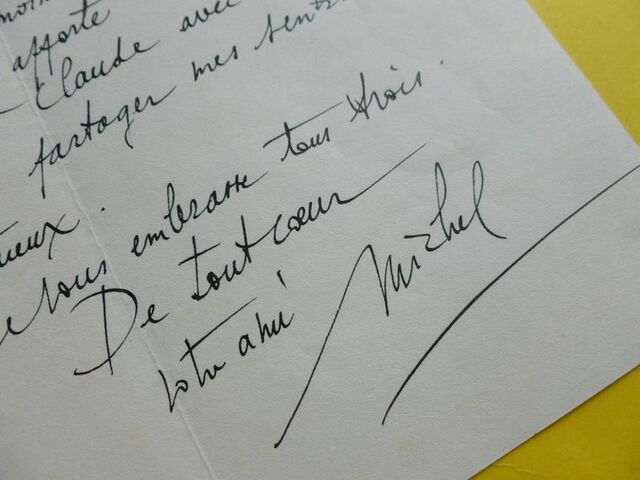 afforte
Claude avec
partager mes sent
vous embrasse tous trois.
De tout cœur
votre ami Michel